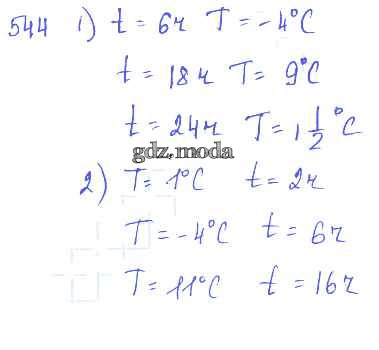 544 1) t = 6ч T = -4°C
t = 18ч T = 9°C
t = 24ч T = 1 1/2 °C
gdz.moda
2) T = 1°C t = 2ч
T = -4°C t = 6ч
T = 11°C t = 16ч